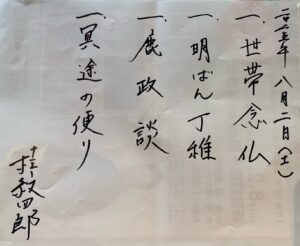 二〇二五年 八月二日(土)
一.世帯念仏
一.明ばん丁稚
一.鹿政談
一.冥途の便り
叙四郎